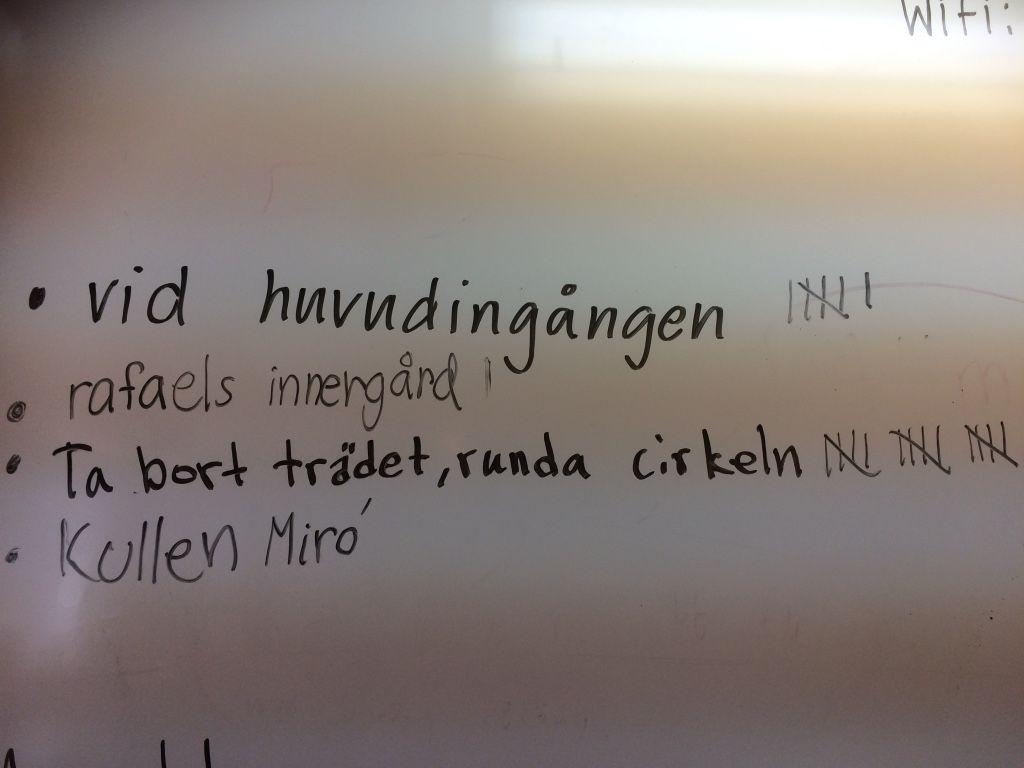 Wifi:
• vid huvudingången
• rafaels innergård
• Ta bort trädet, runda cirkeln
• Kullen Miró